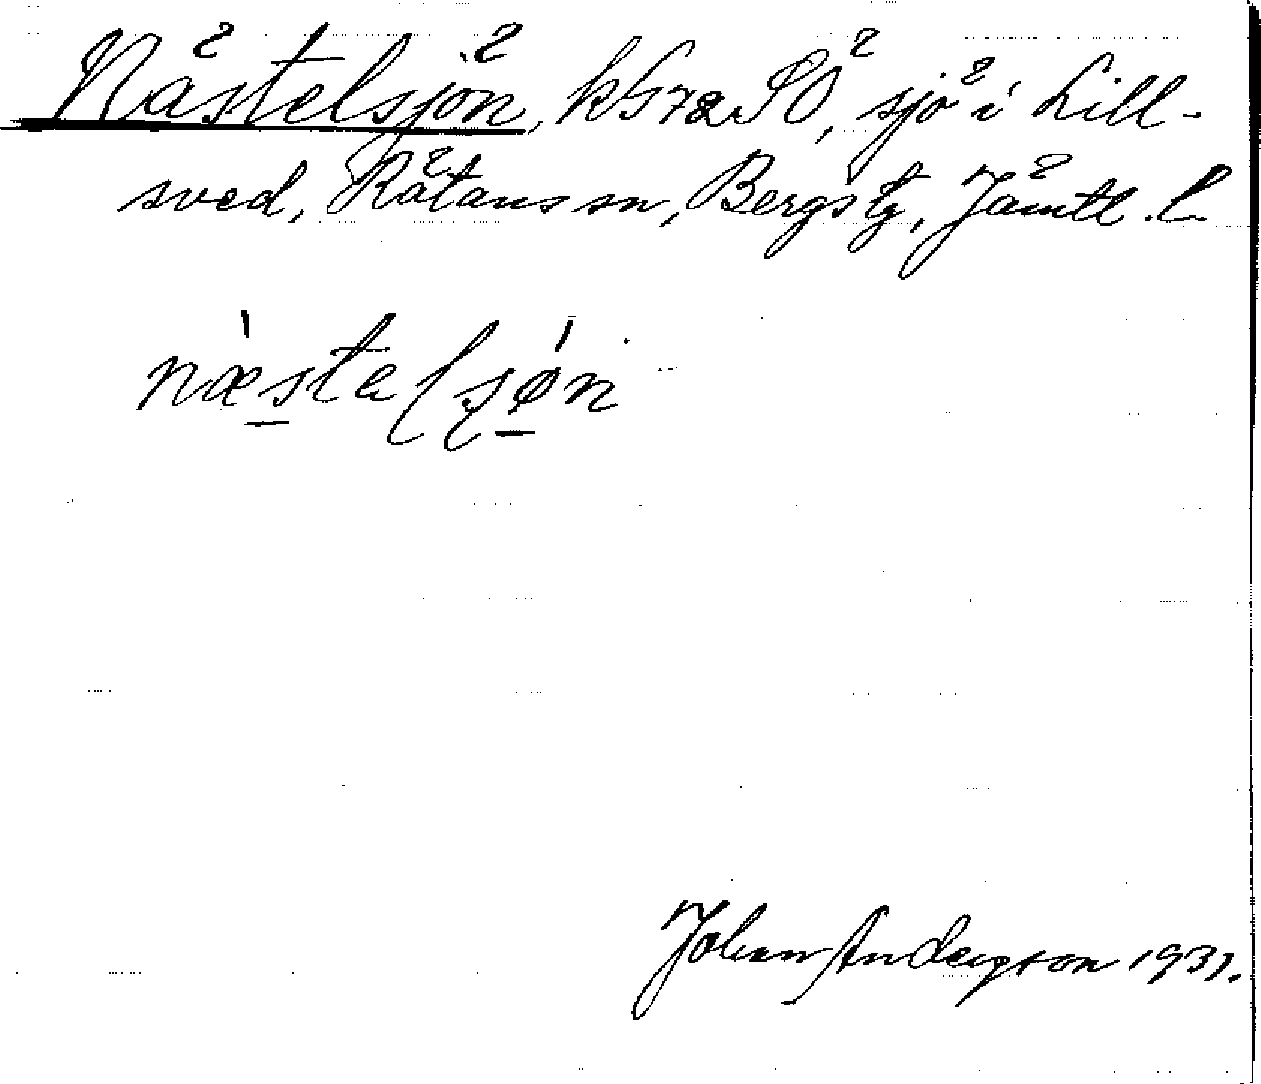 Nästelsjön, k572SO, sjö i Lill-
sved, Rätans sn, Bergs tg, Jämtl. l.
næstelsjøn
Johan Anderson 1931.